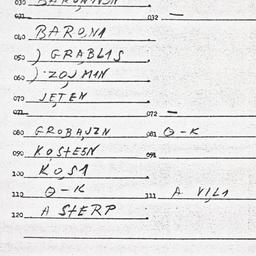 030 BARONINJN
031 032 —
040 BARONI
050 ) GRABLIS
060 ) ZOJMIN
070 JETEN
071 072 —
080 GROBAJZN 081 O-K
090 KOSTESN 091
100 KOSI
110 O-K 111 A VILI
120 A STERP